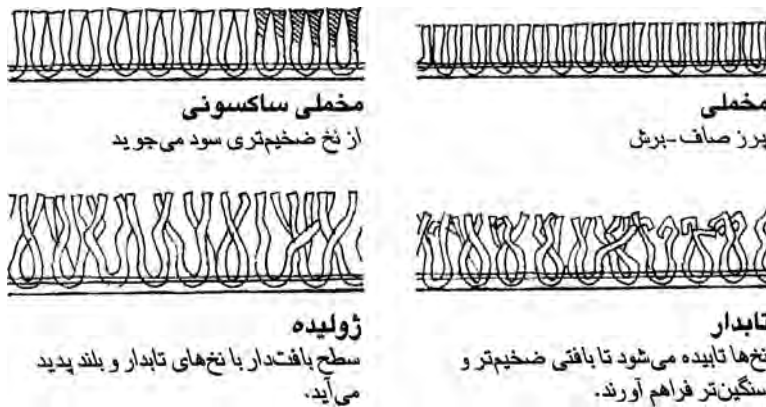 مخملی
پرز صاف-برش
مخملی ساکسونی
از نخ ضخیم‌تری سود می‌جوید
تابدار
نخ‌ها تابیده می‌شود تا بافتی ضخیم‌تر و
سنگین‌تر فراهم آورند.
ژولیده
سطح بافت‌دار با نخ‌های تابدار و بلند پدید
می‌آید.